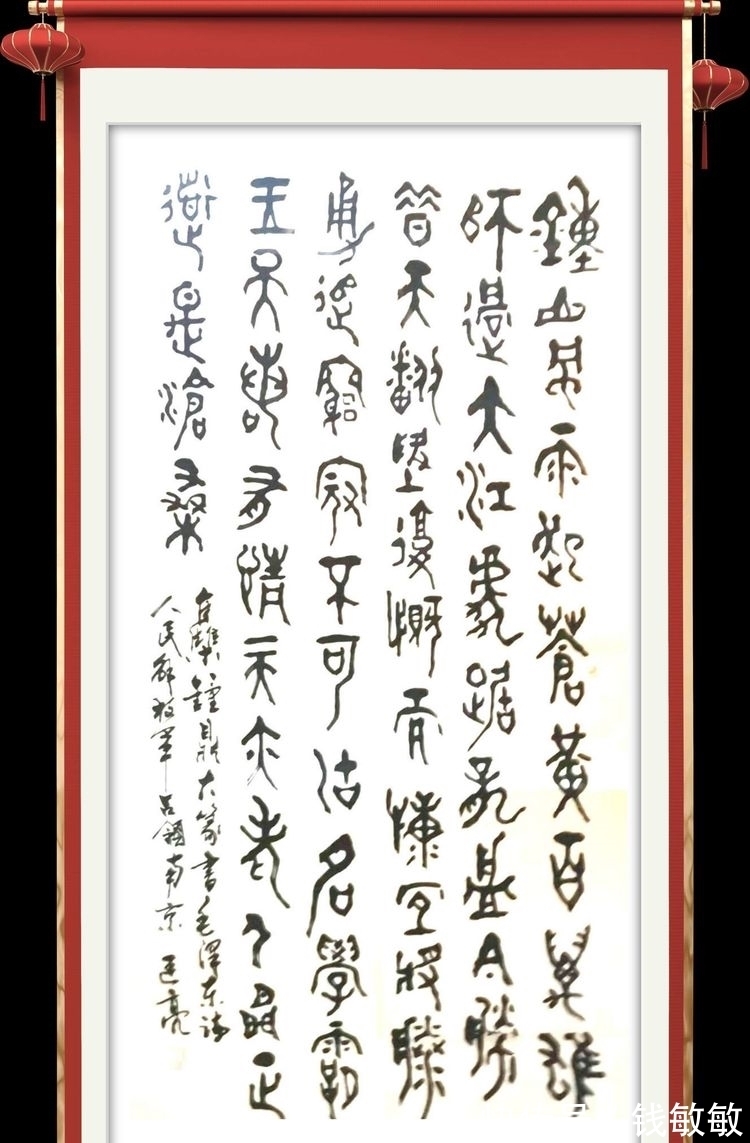 鍾山風雨起蒼黃百萬雄
師過大江虎踞龍盤今勝
昔天翻地覆慨而慷宜將賸
勇追窮寇不可沽名學霸
王天若有情天亦老人間正
道是滄桑
鐘鼎大篆書毛澤東詩
人民解放軍占領南京 亮
钱敏敏